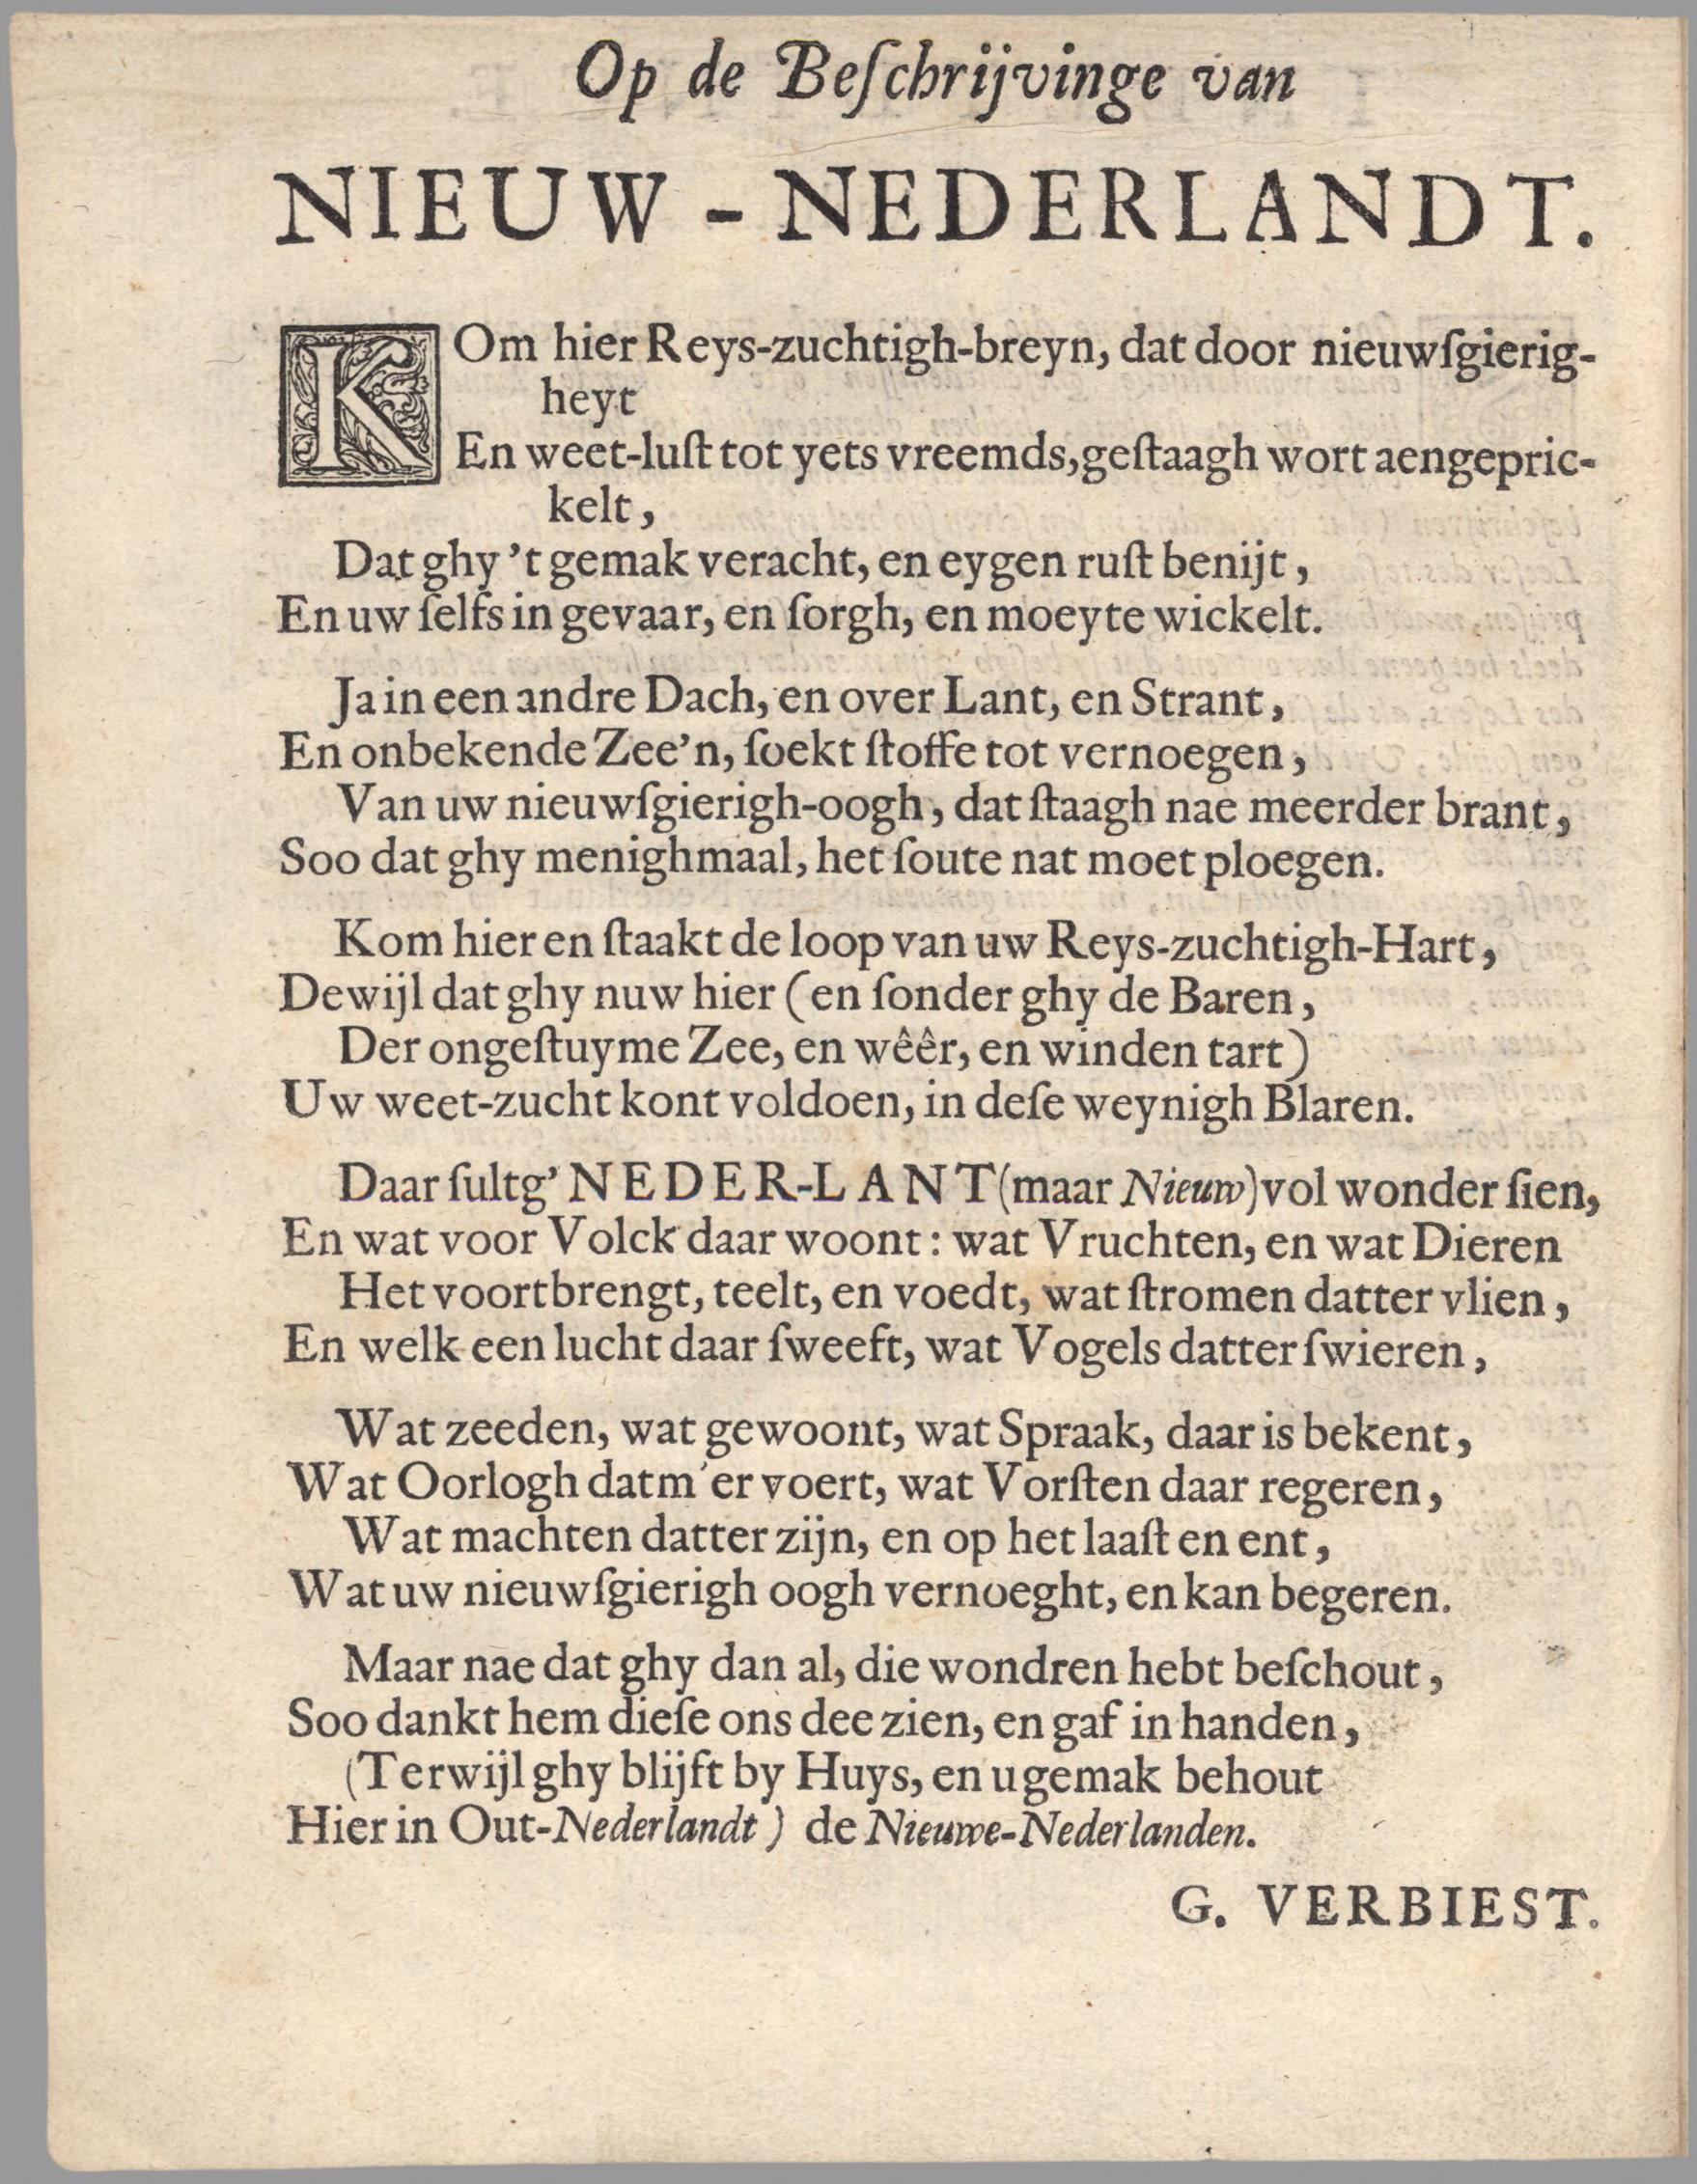 Op de Beſchrijvinge van
NIEUW-NEDERLANDT.
KOm hier Reys-zuchtigh-breyn, dat door nieuwſgierig-
heyt
En weet-luſt tot yets vreemds, geſtaagh wort aengepric-
kelt,
Dat ghy 't gemak veracht, en eygen ruſt benijt,
En uw ſelfs in gevaar, en ſorgh, en moeyte wickelt.
Ja in een andre Dach, en over Lant, en Strant,
En onbekende Zee'n, ſoekt ſtoffe tot vernoegen,
Van uw nieuwſgierigh-oogh, dat ſtaagh nae meerder brant,
Soo dat ghy menighmaal, het ſoute nat moet ploegen.
Kom hier en ſtaakt de loop van uw Reys-zuchtigh-Hart,
Dewijl dat ghy nuw hier (en ſonder ghy de Baren,
Der ongeſtuyme Zee, en wêêr, en winden tart)
Uw weet-zucht kont voldoen, in deſe weynigh Blaren.
Daar ſultg' NEDER-LANT (maar Nieuw) vol wonder ſien,
En wat voor Volck daar woont: wat Vruchten, en wat Dieren
Het voortbrengt, teelt, en voedt, wat ſtromen datter vlien,
En welk een lucht daar ſweeft, wat Vogels datter ſwieren,
Wat zeeden, wat gewoont, wat Spraak, daar is bekent,
Wat Oorlogh datm'er voert, wat Vorſten daar regeren,
Wat machten datter zijn, en op het laaſt en ent,
Wat uw nieuwſgierigh oogh vernoeght, en kan begeren.
Maar nae dat ghy dan al, die wondren hebt beſchout,
Soo dankt hem dieſe ons dee zien, en gaf in handen,
(Terwijl ghy blijft by Huys, en u gemak behout
Hier in Out-Nederlandt) de Nieuwe-Nederlanden.
G. VERBIEST.